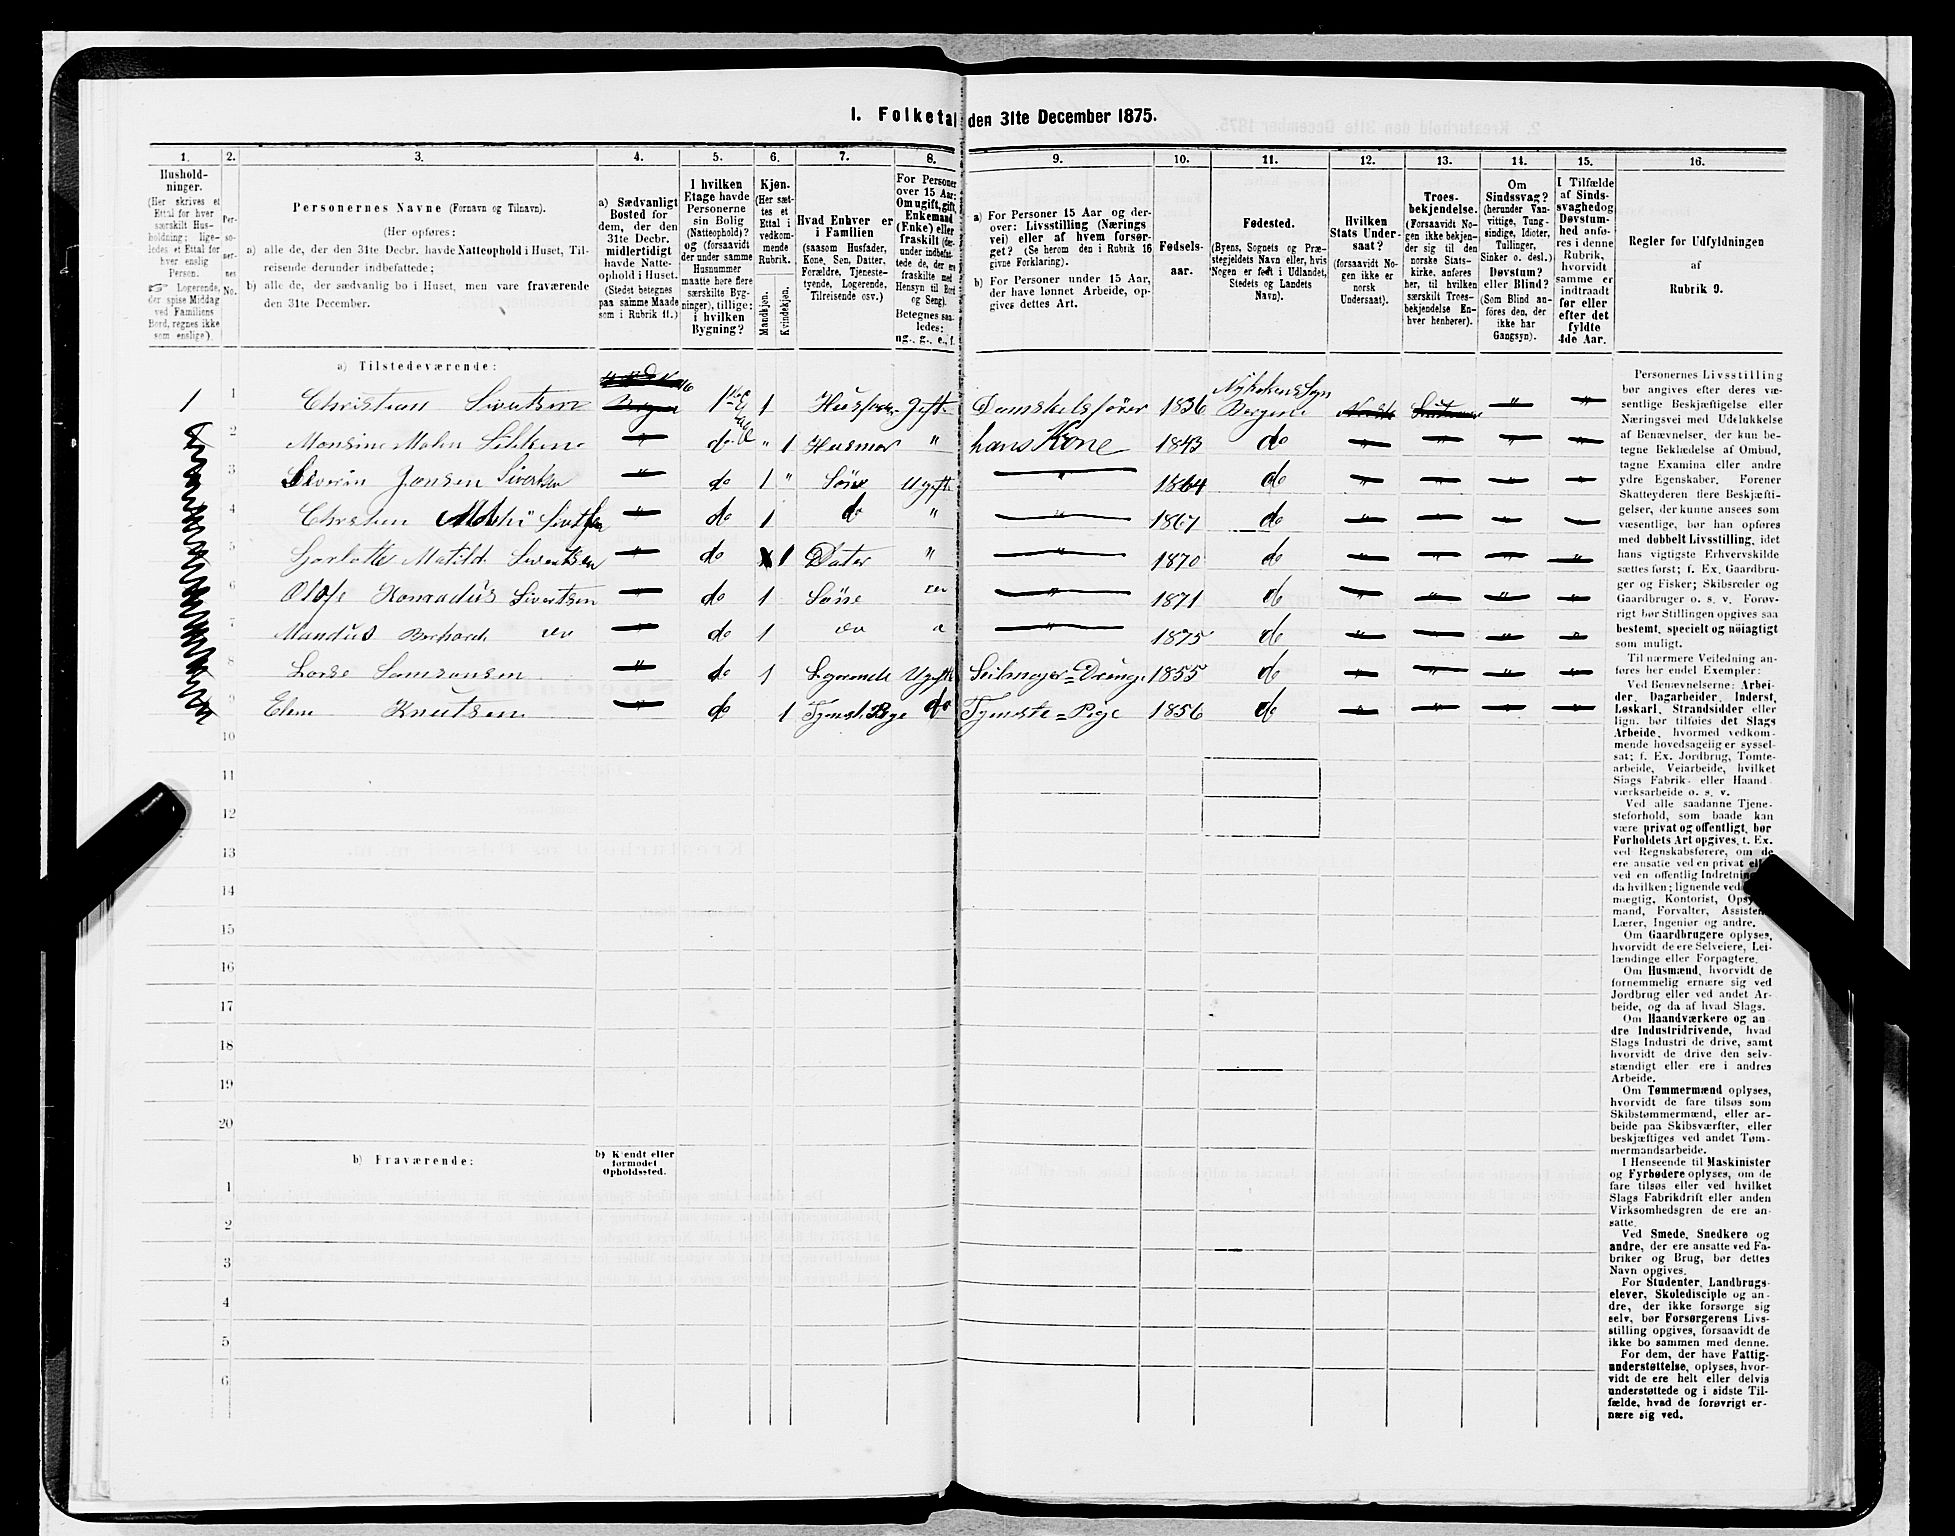 1. Folketal den 31te December 1875.
1. 2. 3. 4. 5. 6. 7. 8. 9. 10. 11. 12. 13. 14. 15. 16.
Hushold-
ninger.
(Her skrives et
Ettal for hver
særskilt Hus-
holdning; lige-
ledes et Ettal for
hver enslig
Person.
☞ Logerende,
der spise Middag
ved Familiens
Bord, regnes ikke
som enslige).
Per-
so-
ner-
nes
No.
Personernes Navne (Fornavn og Tilnavn).
(Her opføres:
a) alle de, der den 31te Decbr. havde Natteophold i Huset, Til-
reisende derunder indbefattede;
b) alle de, der sædvanlig bo i Huset, men vare fraværende
den 31te December.
a) Sædvanligt
Bosted for
dem, der den
31te Decbr.
midlertidigt
havde Natte-
ophold i Huset.
(Stedet betegnes
paa samme Maade
som i Rubrik 11.)
I hvilken
Etage havde
Personerne
sin Bolig
(Natteophold)?
og (forsaavidt
der under samme
Husnummer
maatte høre flere
særskilte Byg-
ninger), tillige:
i hvilken
Bygning?
Kjøn.
(Her sæt-
tes et
Ettal i
vedkom-
mende
Rubrik.
Mandkjøn.
Kvindekjøn.
Hvad Enhver er
i Familien
(saasom Husfader,
Kone, Søn, Datter,
Forældre, Tjeneste-
tyende, Logerende,
Tilreisende osv.)
For Personer
over 15 Aar:
Om ugift, gift,
Enkemand
(Enke) eller
fraskilt (der-
under indbefat-
tede de, der ere
fraskilte med
Hensyn til Bord
og Seng).
Betegnes saa-
ledes:
ug., g., e., f.
a) For Personer 15 Aar og der-
over: Livsstilling (Nærings
vei) eller af hvem forsør-
get? (Se herom den i Rubrik 16
givne Forklaring).
b) For Personer under 15 Aar,
der have lønnet Arbeide, op-
gives dettes Art.
Fødsels-
aar.
Fødested.
(Byens, Sognets og Præ-
stegjeldets Navn eller, hvis
Nogen er født i Udlandet,
Stedets og Landets
Navn).
Hvilken
Stats Under-
saat?
(forsaavidt No-
gen ikke er
norsk
Undersaat).
Troes-
bekjendelse.
(Forsaavidt No-
gen ikke bekjen-
der sig til den
norske Stats-
kirke, anføres
her, til hvilken
særskilt Troes-
bekjendelse En-
hver henhører).
Om
Sindssvag?
(herunder Van-
vittige, Tung-
sindige, Idioter,
Tullinger,
Sinker o. desl.)
Døvstum?
eller Blind?
(Som Blind an-
föres den, der
ikke har
Gangsyn).
I Tilfælde
af Sinds-
svaghed og
Døvstum-
hed anfø-
res i denne
Rubrik,
hvorvidt
samme er
indtraadt
før eller
efter det
fyldte
4de Aar.
Regler for Udfyldningen
af
Rubrik 9.
a) Tilstedeværende:
1 1 Christian Sivertsen Bergen 1 Husfader Gift Damskelsfører 1836 Bergen Norsk " "
2 Monsine Malen " do " 1 Husmor " hans Kone 1843 do " " " "
3 Jansen " do 1 " Søn Ugift " 1864 do " " " "
4 " do 1 do " " 1867 do " " " "
5 Matild Sivertsen " do 1 Dater " " 1870 do " " " "
6 Konradus Sivertsen " do 1 Søne " 1871 do " " " "
7 " do 1 " 1875 do " " " "
8 Samsonsen " do 1 Ugift 1855 do " " " "
9 Knutsen " do 1 do Tjeneste=Pige 1856 do " " " "
10
11
12
13
14
15
16
17
18
19
20
b) Fraværende:
b) Kjendt eller
formodet
Opholdssted.
1
2
3
4
5
6
Personernes Livsstilling
bør angives efter deres væ-
sentlige Beskjæftigelse eller
Næringsvei med Udelukkelse
af Benævnelser, der kun be-
tegne Beklædelse af Ombud,
tagne Examina eller andre
ydre Egenskaber. Forener
Skatteyderen flere Beskjæfti-
gelser, der kunne ansees som
væsentlige, bør han opføres
med dobbelt Livsstilling, idet
hans vigtigste Erhvervskilde
sættes først; f. Ex. Gaardbru-
ger og Fisker; Skibsreder og
Gaardbruger o. s. v. Forøv-
rigt bør Stillingen opgives saa
bestemt, specielt og nöiagtigt
som muligt.
Til nærmere Veiledning an-
føres her endel Exempler:
Ved Benævnelserne: Arbei-
der, Dagarbeider, Inderst,
Løskarl, Strandsidder eller
lign. bør tilføies det Slags
Arbeide, hvormed vedkom-
mende hovedsagelig er syssel-
sat; f. Ex. Jordbrug, Tomte-
arbeide, Veiarbeide, hvilket
Slags Fabrik- eller Haand
værksarbeide o. s. v.
Ved alle saadanne Tjene-
steforhold, som baade kan
være privat og offentligt, bør
Forholdets Art opgives, f. Ex.
ved Regnskabsførere, om de
ere ansatte ved en privat
ved en offentlig
da hvilken; lignende
mægtig, Kontorist,
mand, Forvalter,
Lærer, Ingeniør og andre.
Om Gaardbrugere oplyses,
hvorvidt de ere Selveiere, Lei-
lændinge eller Forpagtere.
Om Husmænd, hvorvidt de
fornemmelig ernære sig ved
Jordbrug eller ved andet Ar-
beide, og da af hvad Slags.
Om Haandværkere og an
dre Industridrivende, hvad
Slags Industri de drive, samt
hvorvidt de drive den selv-
stændigt eller ere i andres
Arbeide.
Om Tømmermænd oplyses,
hvorvidt de fare tilsøs som
Skibstømmermænd, eller ar-
beide paa Skibsværfter, eller
beskjæftiges ved andet Tøm-
mermandsarbeide.
I Henseende til Maskinister
og Fyrbødere oplyses, om de
fare tilsøs eller ved hvilket
Slags Fabrikdrift eller anden
Virksomhedsgren de ere an-
satte.
Ved Smede, Snedkere og
andre, der ere ansatte ved Fa-
briker og Brug, bør dettes
Navn opgives.
For Studenter, Landbrugs-
elever, Skoledisciple og an-
dre, der ikke forsørge sig
selv, bør Forsørgerens Livs-
stilling opgives, forsaavidt de
ikke bo sammen med denne.
For dem, der have Fattig-
understøttelse, oplyses, hvor-
vidt de ere helt eller delvis
understøttede og i sidste Til-
fælde, hvad de forøvrigt er-
nære sig ved.